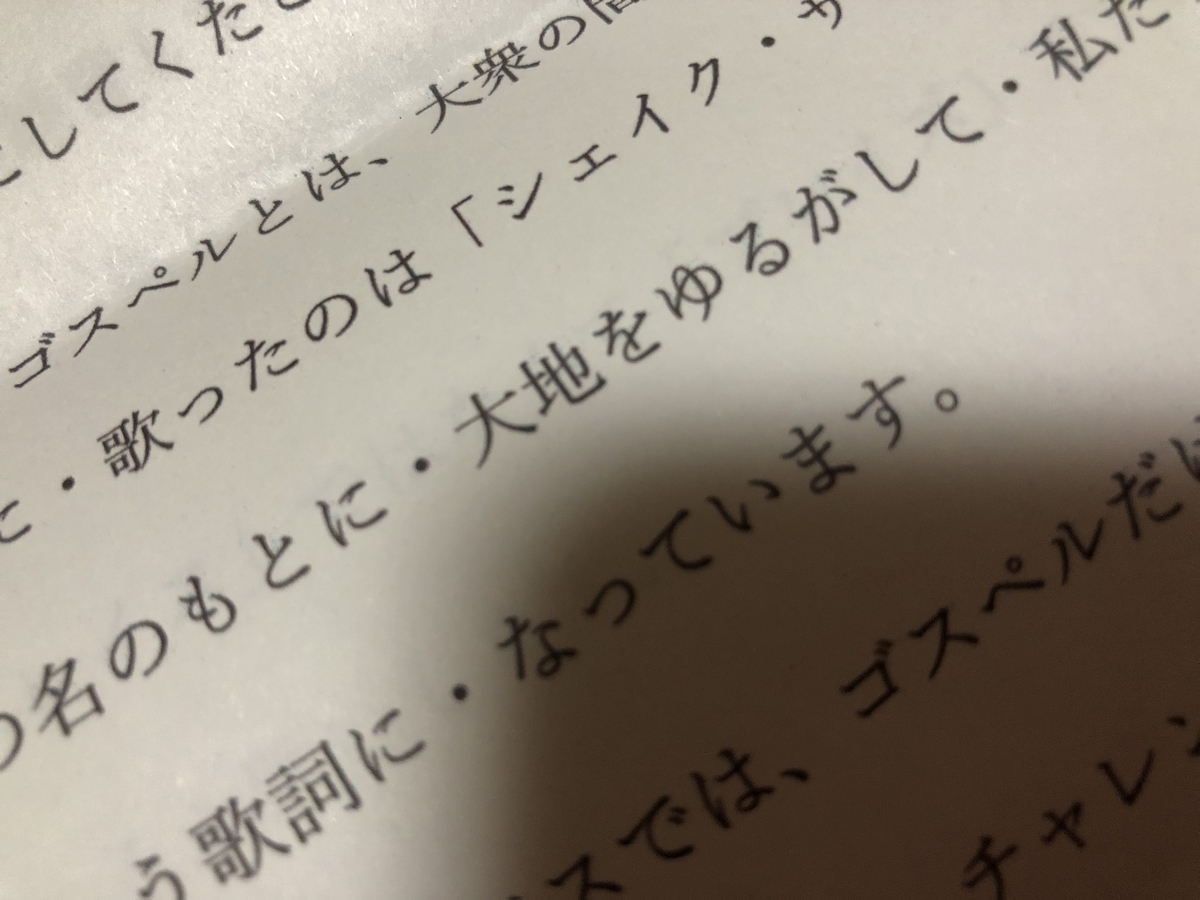 してくださ
ゴスペルとは、大衆の間
に・歌ったのは「シェイク・サ
の名のもとに・大地をゆるがして・私た
う歌詞に・なっています。
スでは、ゴスペルだけ
チャレン